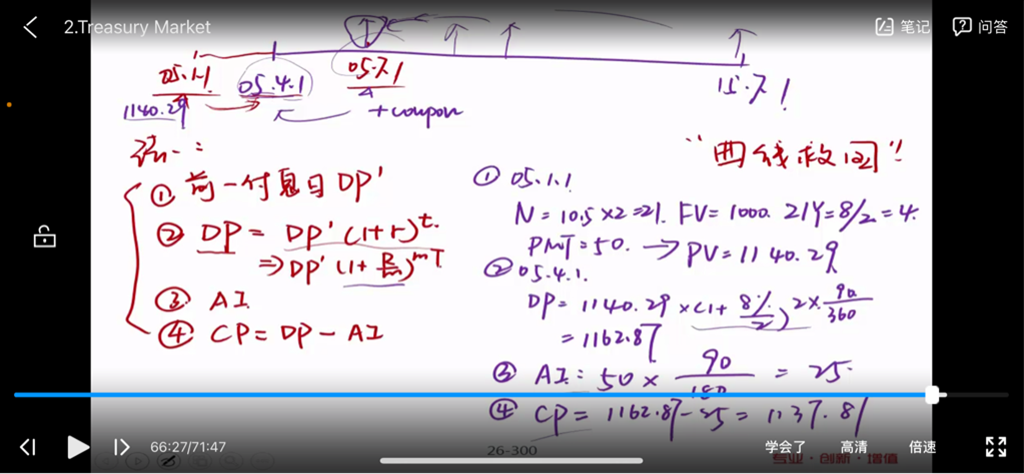 2.Treasury Market
笔记
问答
05.1.1
05.4.1
05.7.1
15.7.1
1140.29
+coupon
法一:
① 前一付息日 DP'
② DP = DP'(1+r)^t.
⇒ DP'(1+ )^mT
③ AI
④ CP = DP - AI
"曲线救国"
① 05.1.1
N = 10.5×2=21. FV=1000. I/Y=8/2=4.
PMT=50. → PV=1140.29
② 05.4.1.
DP= 1140.29 ×(1+ 8%/2)^2× 90/360
= 1162.87
③ AI: 50 × 90/180 = 25.
④ CP = 1162.87-25 = 1137.87
66:27/71:47
26-300
学会了
高清
倍速
专业·创新·增值